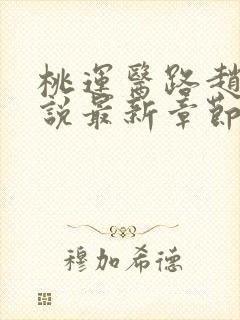 桃運醫路趙
說最新章節
穆加希德